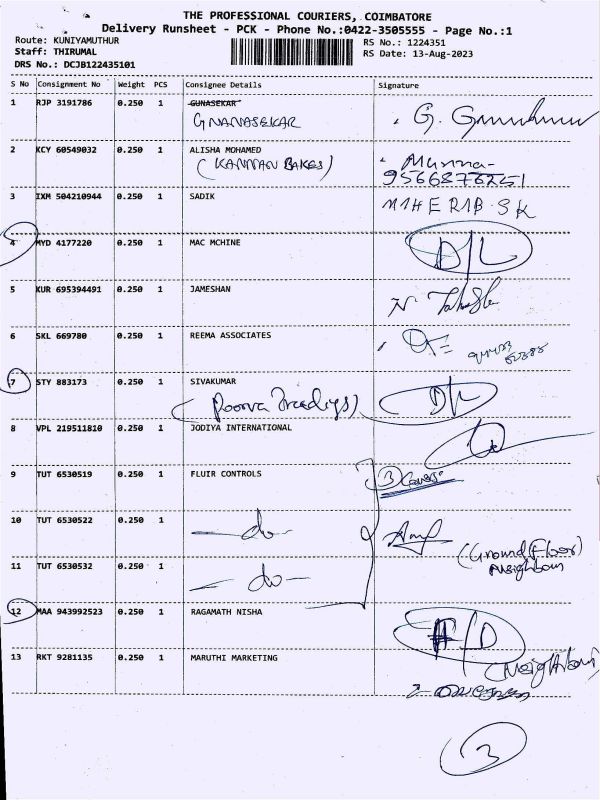 THE PROFESSIONAL COURIERS, COIMBATORE
Delivery Runsheet - PCK - Phone No.:0422-3505555 - Page No.:1
Route: KUNIYAMUTHUR
RS No.: 1224351
Staff: THIRUMAL
RS Date: 13-Aug-2023
DRS No.: DCJB122435101
S No Consignment No Weight PCS Consignee Details Signature
1 RJP 3191786 0.250 1 GUNASEKAR
GNANASEKAR G.
2 KCY 60549032 0.250 1 ALISHA MOHAMED
(KANNAN BAKES) Munna-
9566876251
3 IXM 504210944 0.250 1 SADIK
4 MYD 4177220 0.250 1 MAC MCHINE D/L
5 KUR 695394491 0.250 1 JAMESHAN N.
6 SKL 669780 0.250 1 REEMA ASSOCIATES
7 STY 883173 0.250 1 SIVAKUMAR D/L
8 VPL 219511810 0.250 1 JODIYA INTERNATIONAL
9 TUT 6530519 0.250 1 FLUIR CONTROLS 3
10 TUT 6530522 0.250 1 -do-
(Ground Floor)
11 TUT 6530532 0.250 1 -do- Neighbour
12 MAA 943992523 0.250 1 RAGAMATH NISHA D
13 RKT 9281135 0.250 1 MARUTHI MARKETING (Neighbour)
3